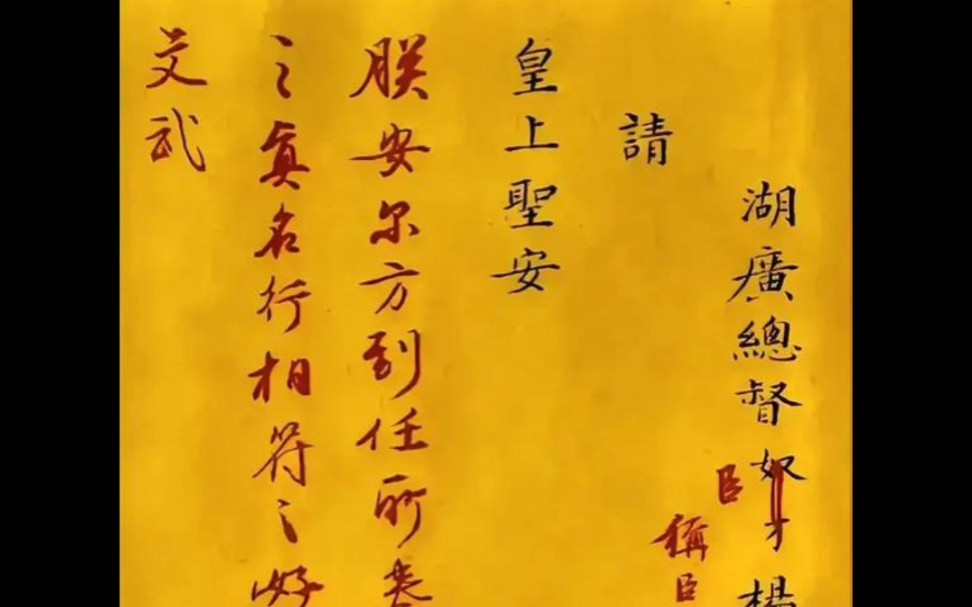 湖廣總督奴才楊
臣
稱臣
請
皇上聖安
朕安尔方到任所
之真名行相符之好
文武